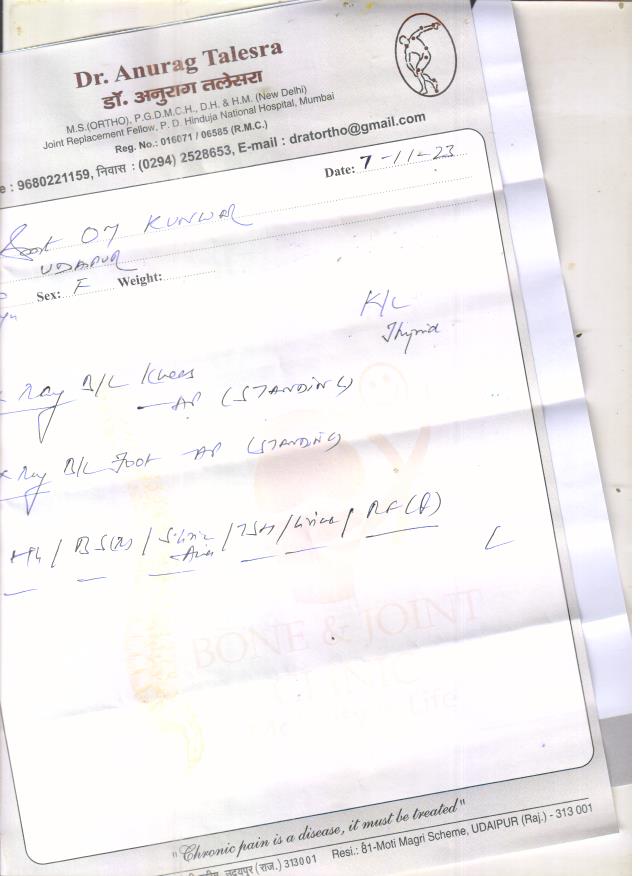 Dr. Anurag Talesra
डॉ. अनुराग तलेसरा
M.S.(ORTHO), P.G.D.M.C.H., D.H. & H.M. (New Delhi)
Joint Replacement Fellow, P. D. Hinduja National Hospital, Mumbai
Reg. No.: 016071 / 06585 (R.M.C.)
: 9680221159, निवास : (0294) 2528653, E-mail : dratortho@gmail.com
Date: 7-11-23
KUNWAR
UDAIPUR
Sex: F Weight:
K/L
Thyroid
Ray B/L Knees
AP (STANDING)
x Ray B/L Foot AP (STANDING)
/ BS(R) / / TSH / / RF(
BONE & JOINT
CLINIC
Life
"Chronic pain is a disease, it must be treated"
उदयपुर (राज.) 313001 Resi.: 81-Moti Magri Scheme, UDAIPUR (Raj.) - 313 001